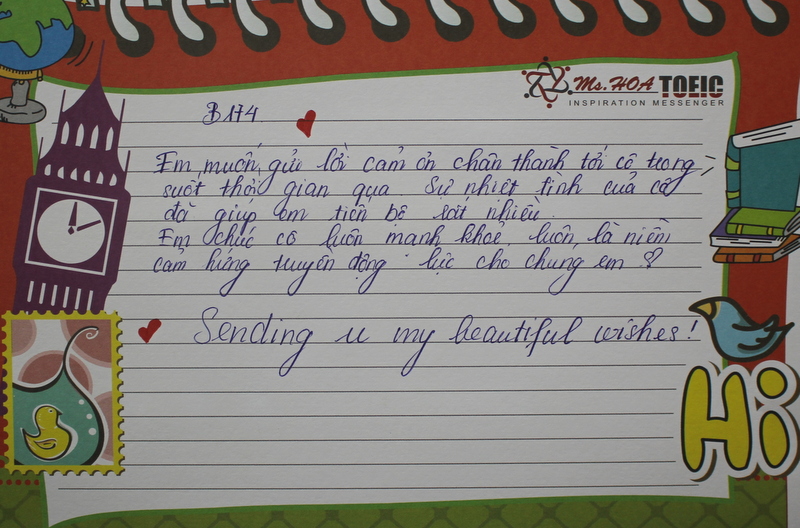 Ms. HOA TOEIC
INSPIRATION MESSENGER
B174
Em muốn gửi lời cảm ơn chân thành tới cô trong
suốt thời gian qua. Sự nhiệt tình của cô
đã giúp em tiến bộ rất nhiều.
Em chúc cô luôn mạnh khoẻ, luôn là niềm
cảm hứng truyền động lực cho chúng em
Sending u my beautiful wishes!
Hi